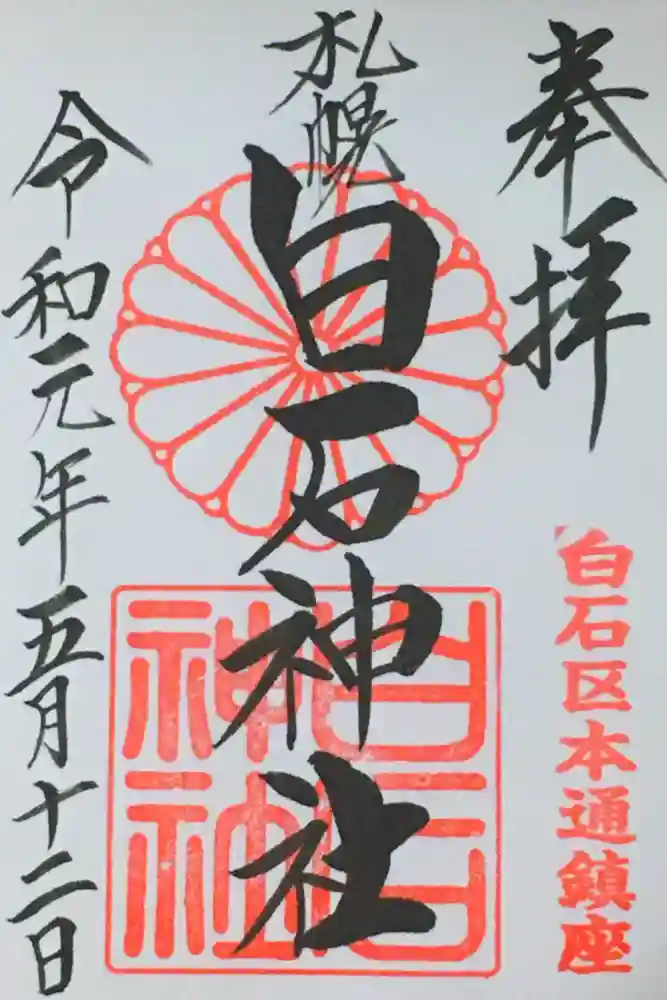 奉拝
白石区本通鎮座
札幌
白石神社
白石神社
令和元年五月十二日